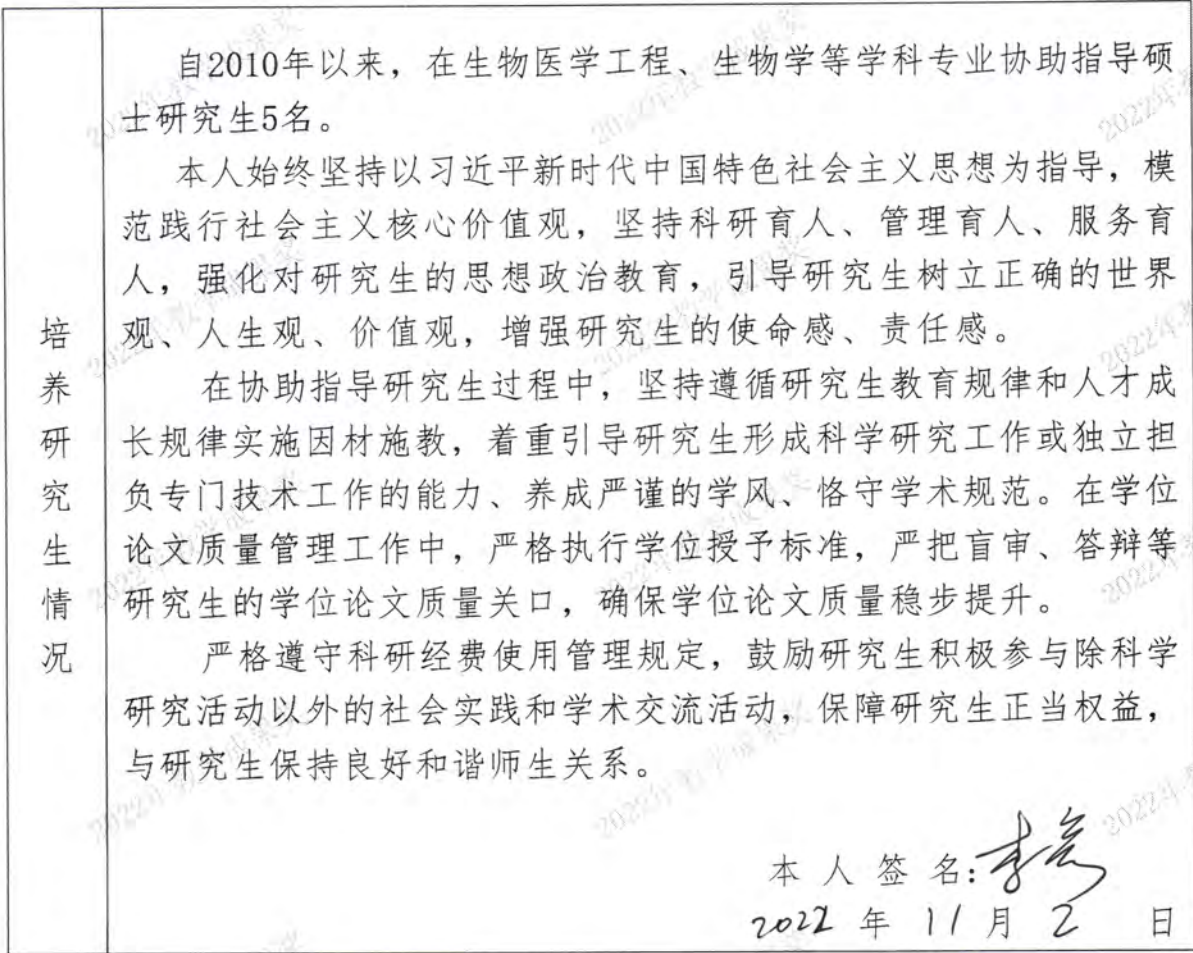 培养研究生情况
自2010年以来，在生物医学工程、生物学等学科专业协助指导硕
士研究生5名。
本人始终坚持以习近平新时代中国特色社会主义思想为指导，模
范践行社会主义核心价值观，坚持科研育人、管理育人、服务育
人，强化对研究生的思想政治教育，引导研究生树立正确的世界
观、人生观、价值观，增强研究生的使命感、责任感。
在协助指导研究生过程中，坚持遵循研究生教育规律和人才成
长规律实施因材施教，着重引导研究生形成科学研究工作或独立担
负专门技术工作的能力、养成严谨的学风、恪守学术规范。在学位
论文质量管理工作中，严格执行学位授予标准，严把盲审、答辩等
研究生的学位论文质量关口，确保学位论文质量稳步提升。
严格遵守科研经费使用管理规定，鼓励研究生积极参与除科学
研究活动以外的社会实践和学术交流活动，保障研究生正当权益，
与研究生保持良好和谐师生关系。
本人签名:
2022年11月2日